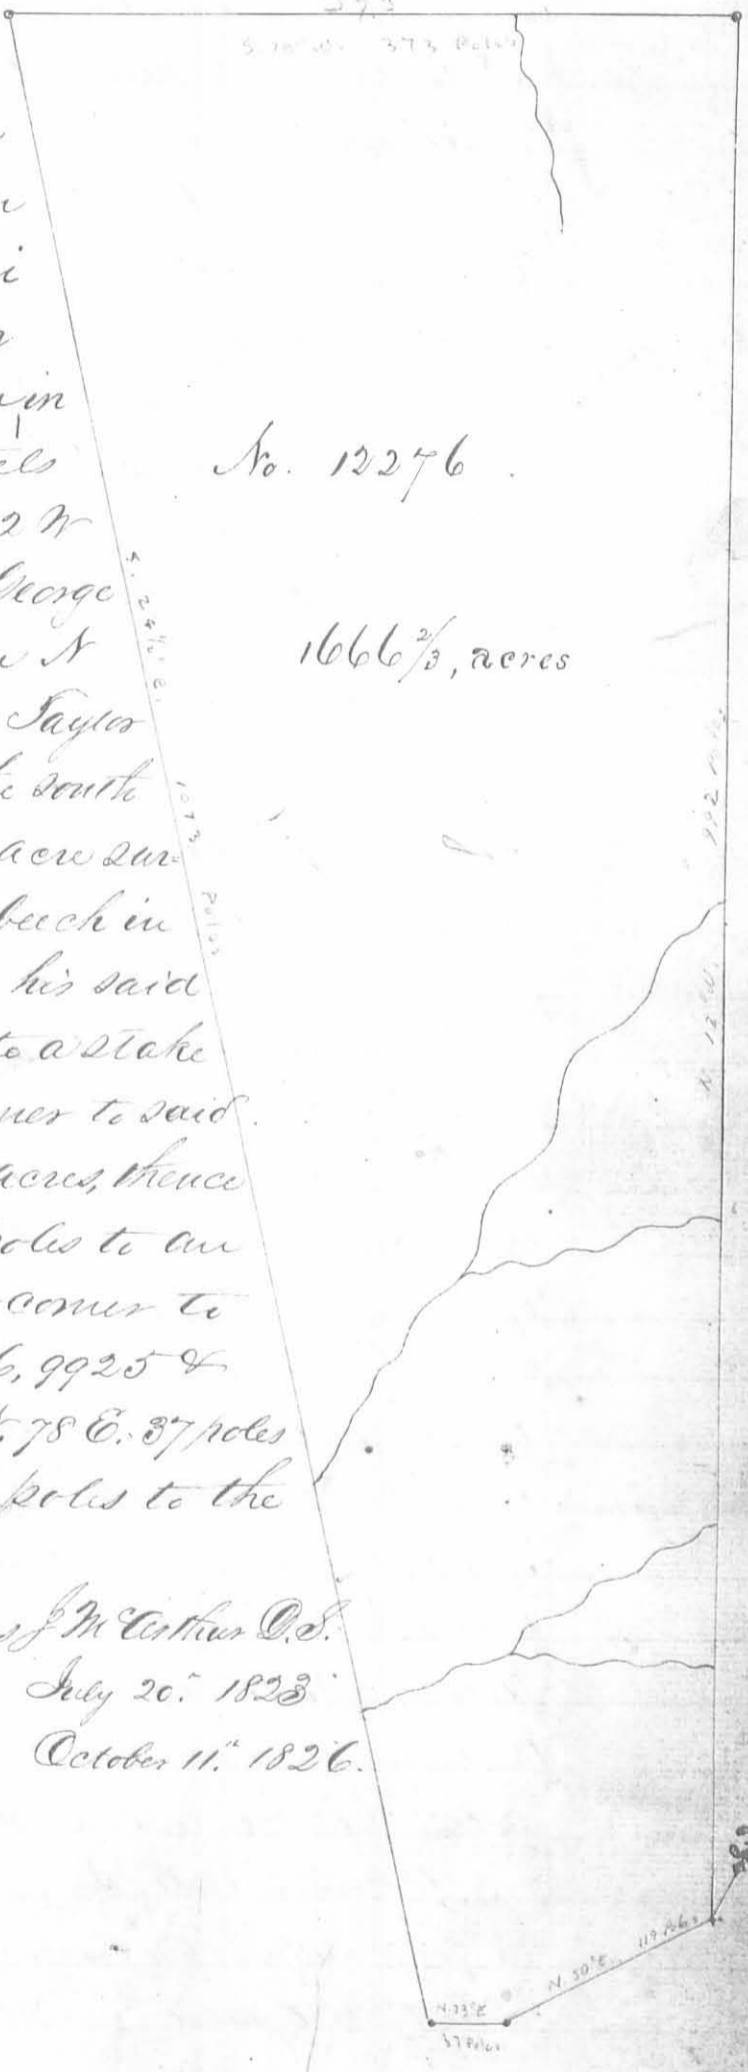 373
S 70° W. 373 Poles
in
els
2 W
George
N
Taylor
south
acre sur=
beech in
his said
to a stake
ner to said
acres, thence
poles to an
corner to
6, 9925 &
N. 78 E. 37 poles
poles to the
J McArthur D.S.
July 20. 1823
October 11. 1826.
No. 12276.
1666 2/3, acres
S. 24 1/2 E. 1073 Poles
N 12° W. 992 Poles
N. 50° E. 119 Poles
N. 73° E
37 Poles